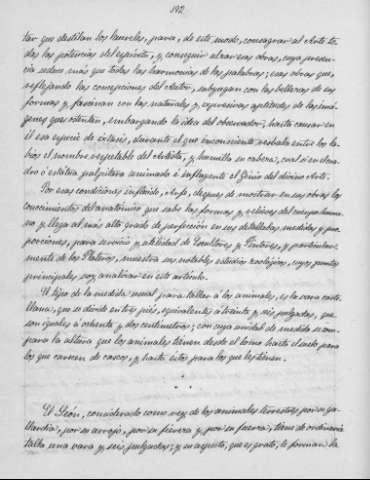 192
tar que destilan los laureles, para, de este modo, consagrar al Arte to-
das las potencias del espíritu, y conseguir alzar esas obras, cuya presen-
cia seduce más que todas las harmonías de las palabras; esas obras que,
reflejando las concepciones del Autor, subyugan con las bellezas de sus
formas y fascinan con las naturales y expresivas aptitudes de las imá-
genes que ostentan, embargando la idea del observador, hasta causar en
él esa especie de éxtasis, durante el que inconsciente resbala entre los la-
bios el nombre respetable del Artista, y humilla su cabeza, cual si en cua-
dro ó estatua palpitara animado é influyente el Génio del divino Arte.
Por esas condiciones influido, Arfe, despues de mostrar en sus obras los
conocimientos del anatómico que sabe las formas y relieves del cuerpo huma-
no y llega al más alto grado de perfección en sus detalladas medidas y pro-
porciones, para servicio y utilidad de Escultores y Pintores, y particular-
mente de los Plateros, muestra sus notables estudios zoológicos, cuyos puntos
principales voy analizar en este artículo.
El tipo de la medida usual para tallar á los animales, es la vara caste-
llana, que se divide en tres piés, equivalentes á treinta y seis pulgadas, que
son iguales á ochenta y dos centímetros; con cuya unidad de medida se com-
para la altura que los animales tienen desde el lomo hasta el suelo para
los que carecen de cascos, y hasta éstos para los que les tienen.
El León, considerado como rey de los animales terrestres por su ga-
llardía, por su arrojo, por su fiereza y por su fuerza, tiene de ordinario
talla una vara y seis pulgadas; y su aspecto, que es grato, le forman la